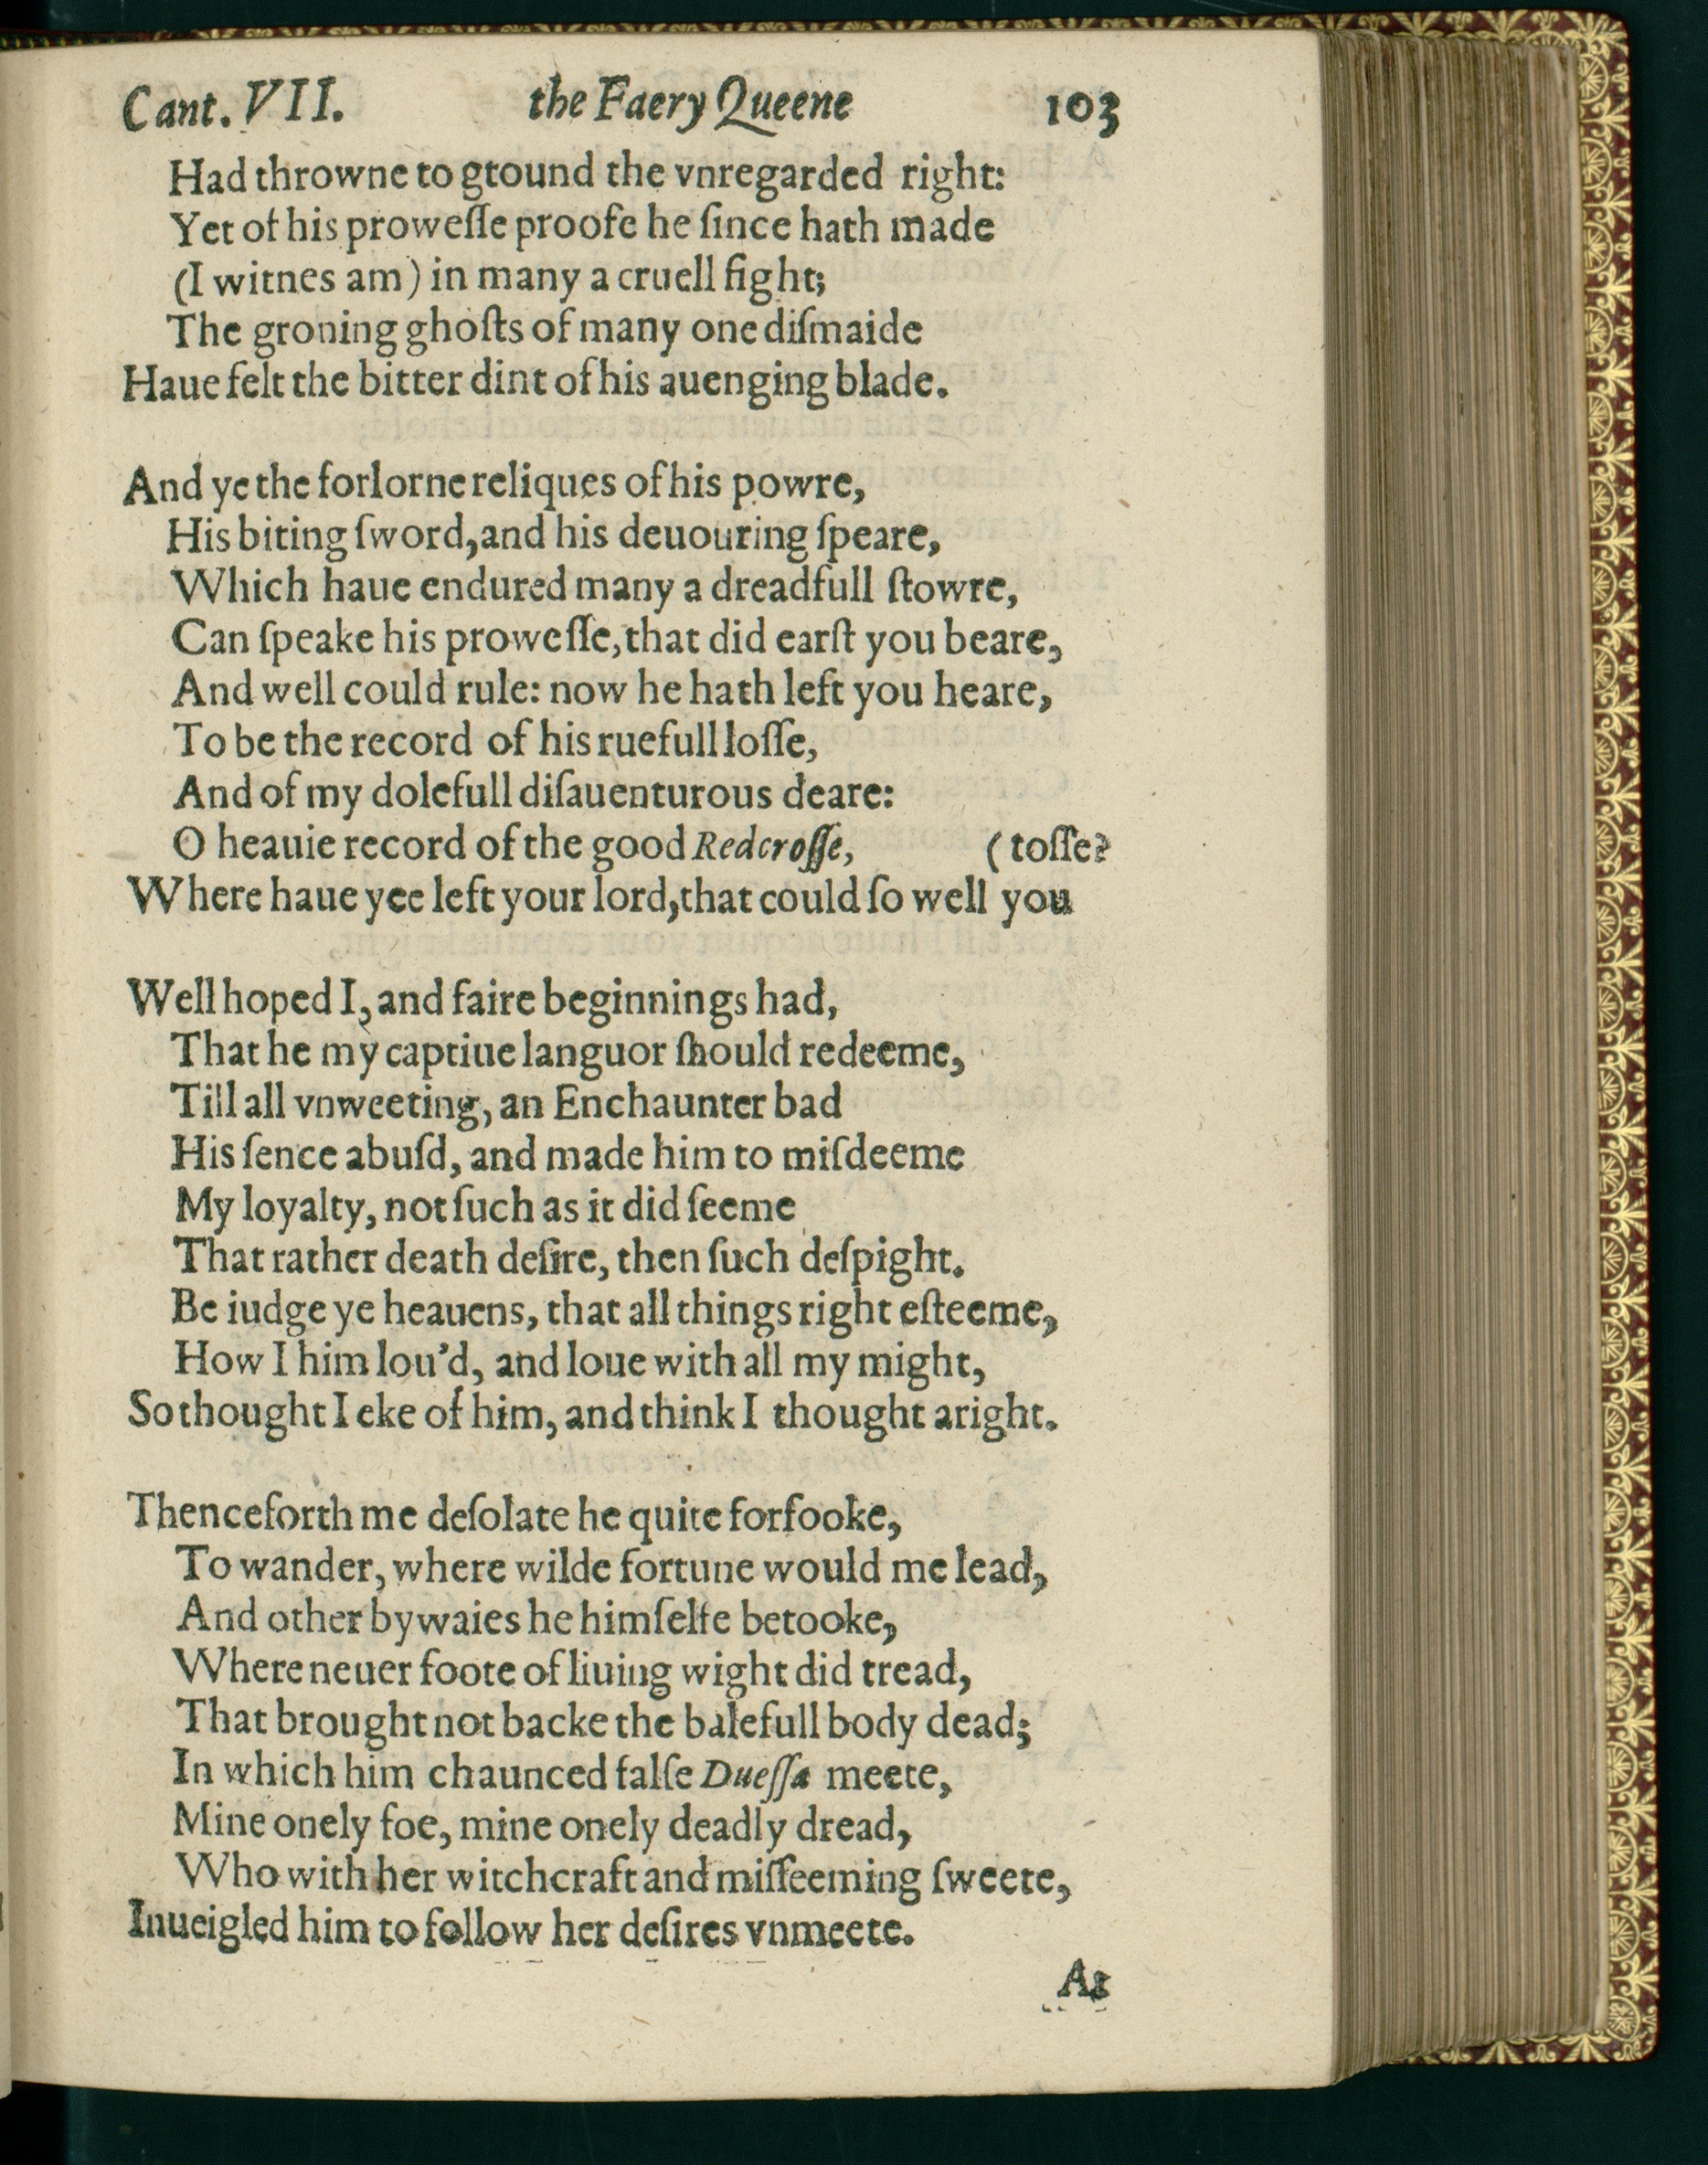 Cant. VII. the Faery Queene 103
Had throwne to gtound the vnregarded right:
Yet of his proweſſe proofe he ſince hath made
(I witnes am) in many a cruell fight;
The groning ghoſts of many one diſmaide
Haue felt the bitter dint of his auenging blade.
And ye the forlorne reliques of his powre,
His biting ſword, and his deuouring ſpeare,
Which haue endured many a dreadfull ſtowre,
Can ſpeake his proweſſe, that did earſt you beare,
And well could rule: now he hath left you heare,
To be the record of his ruefull loſſe,
And of my dolefull diſauenturous deare:
O heauie record of the good Redcroſſe, (toſſe?
Where haue yee left your lord, that could ſo well you
Well hoped I, and faire beginnings had,
That he my captiue languor ſhould redeeme,
Till all vnweeting, an Enchaunter bad
His ſence abuſd, and made him to miſdeeme
My loyalty, not ſuch as it did ſeeme
That rather death deſire, then ſuch deſpight.
Be iudge ye heauens, that all things right eſteeme,
How I him lou'd, and loue with all my might,
So thought I eke of him, and think I thought aright.
Thenceforth me deſolate he quite forfooke,
To wander, where wilde fortune would me lead,
And other bywaies he himſelfe betooke,
Where neuer foote of liuing wight did tread,
That brought not backe the balefull body dead;
In which him chaunced falſe Dueſſa meete,
Mine onely foe, mine onely deadly dread,
Who with her witchcraft and miſſeeming ſweete,
Inueigled him to follow her deſires vnmeete.
At